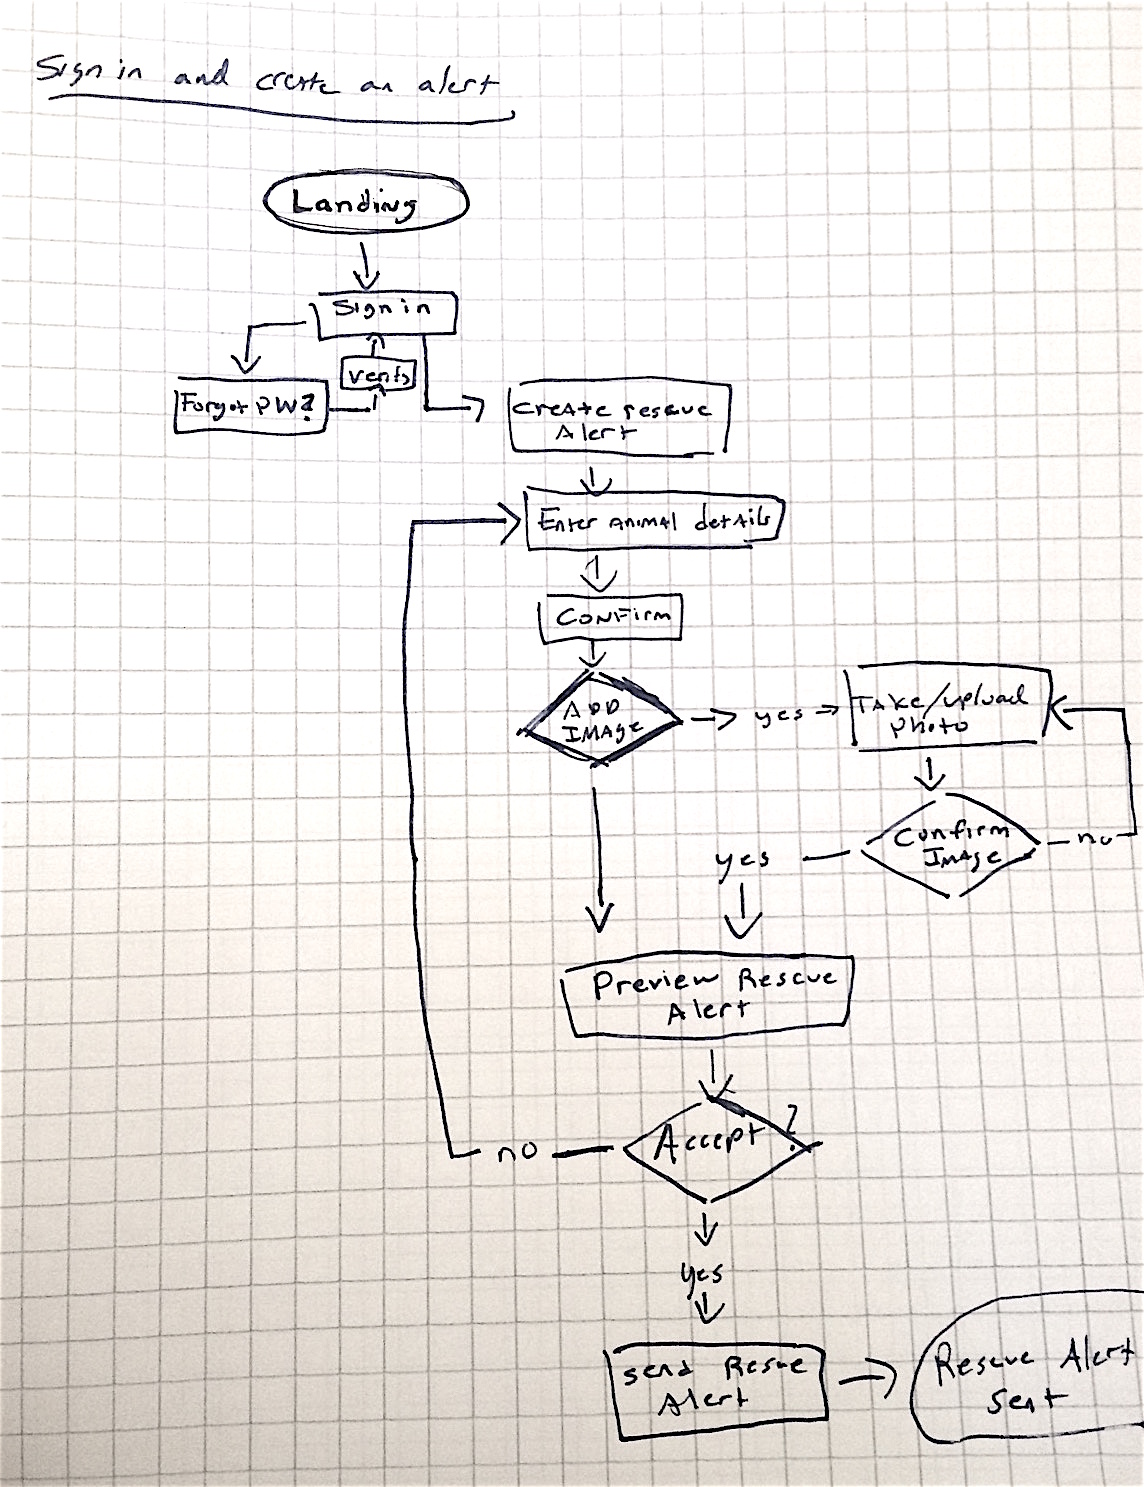 Sign in and create an alert
Landing
Sign in
Verify
Forgot PW?
Create rescue
Alert
Enter animal details
Confirm
ADD
IMAge
yes
TAke/upload
Photo
Confirm
IMAge
no
yes
Preview Rescue
Alert
Accept?
no
yes
send Resue
Alert
Rescue Alert
Sent